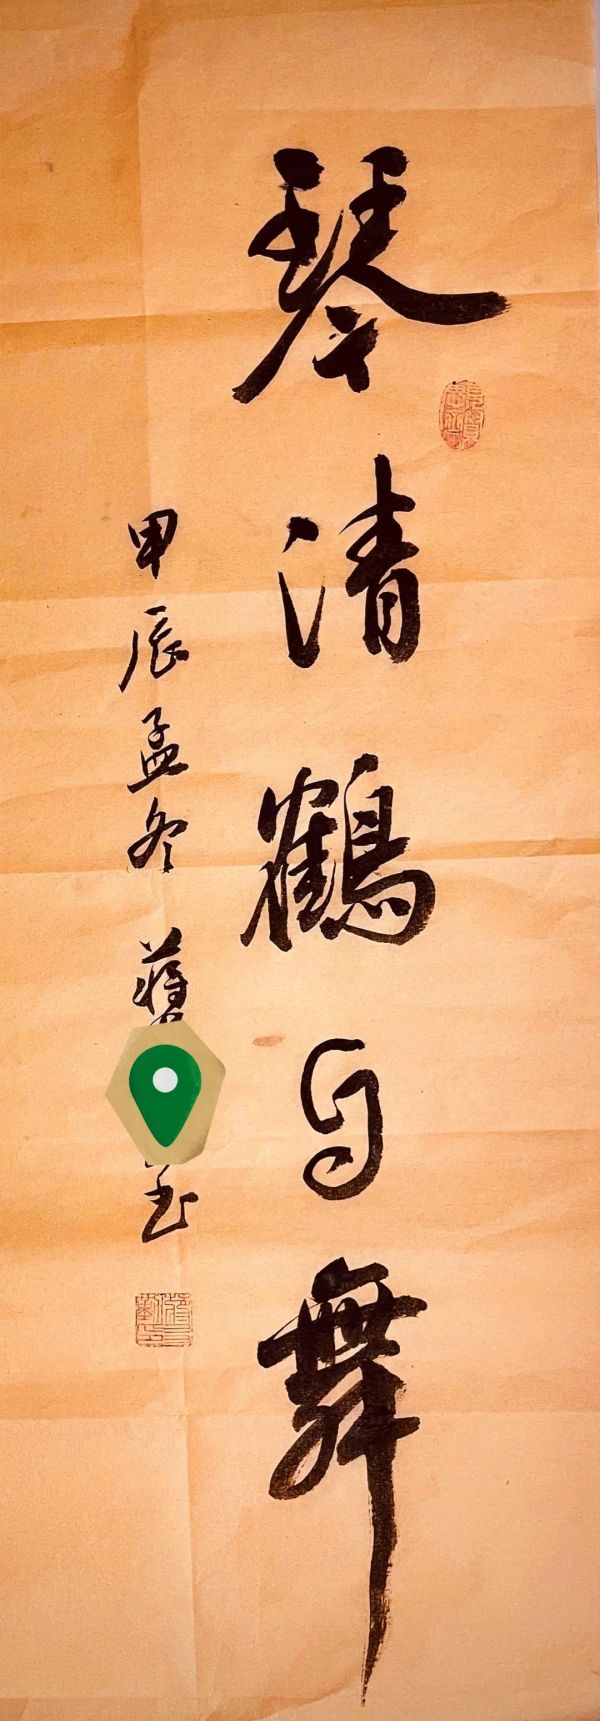 琴清鶴自舞
甲辰孟冬蔣玉